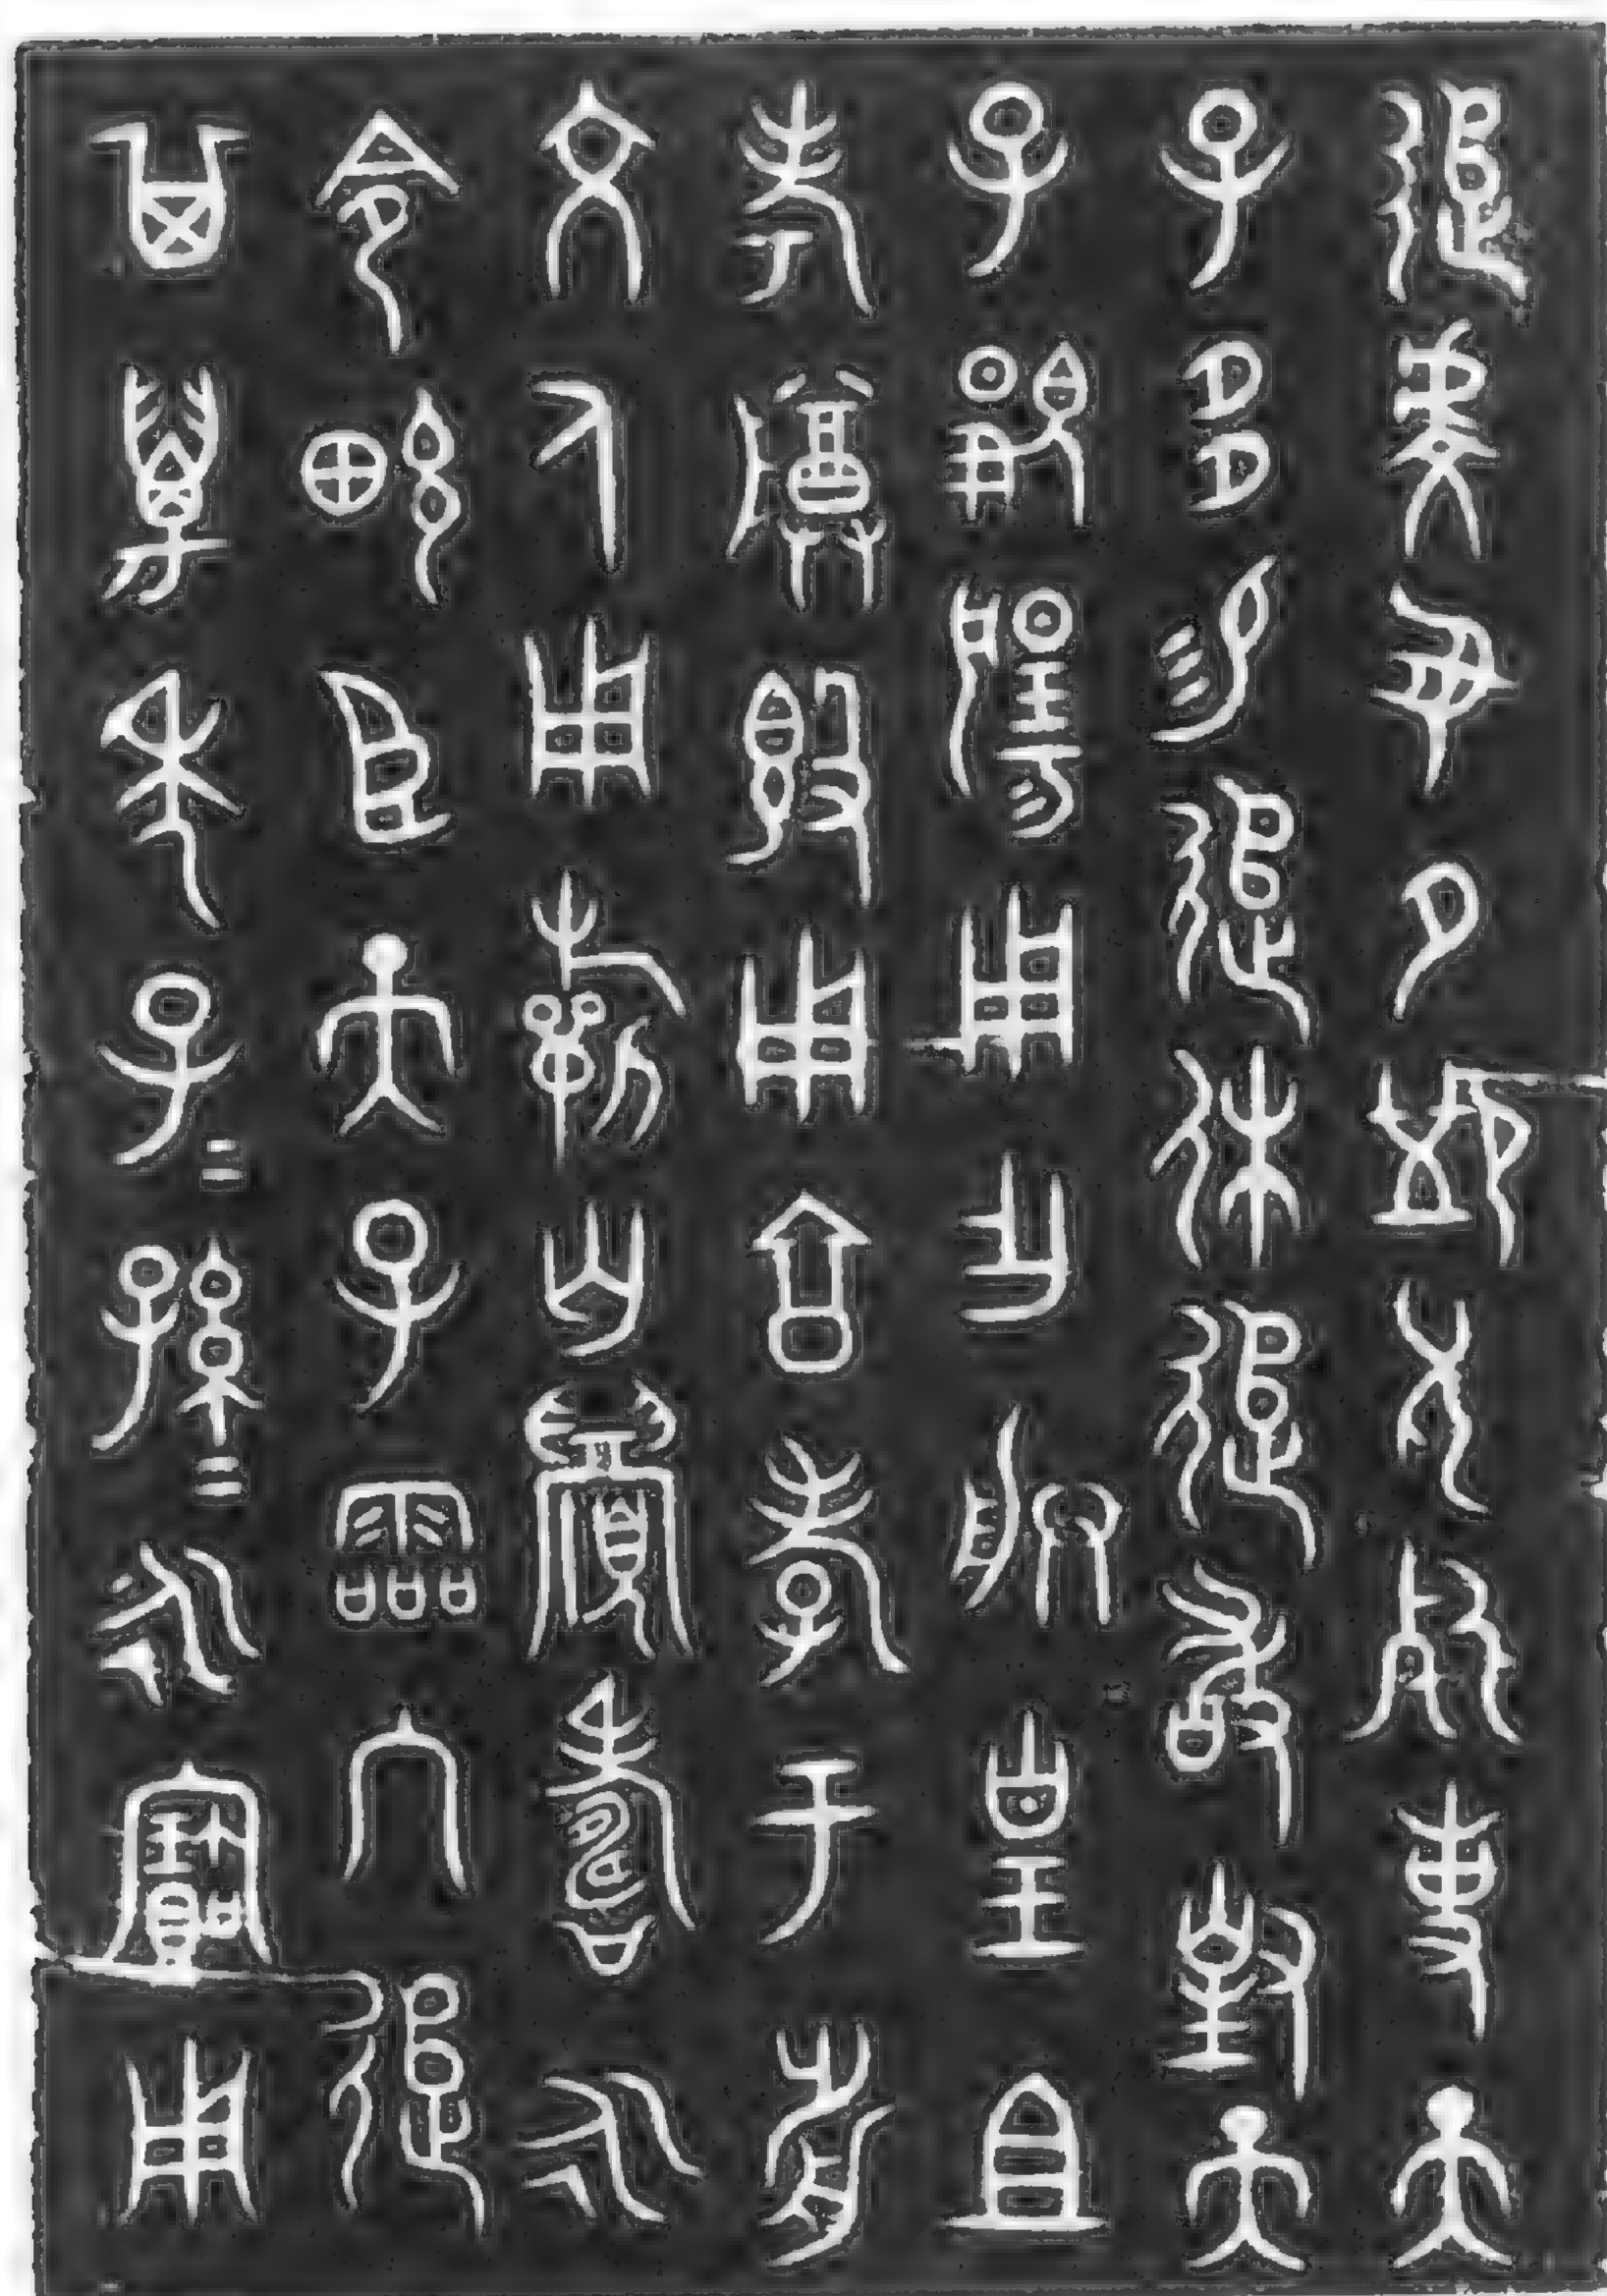 追虔夙夕卹氒死事天
子多易追休追敢對天
子覭揚用乍朕皇且
考尊簋用亯孝于前
文人用祈匄眉壽永
令畯臣天子霝冬追
其萬年子=孫=永寶用